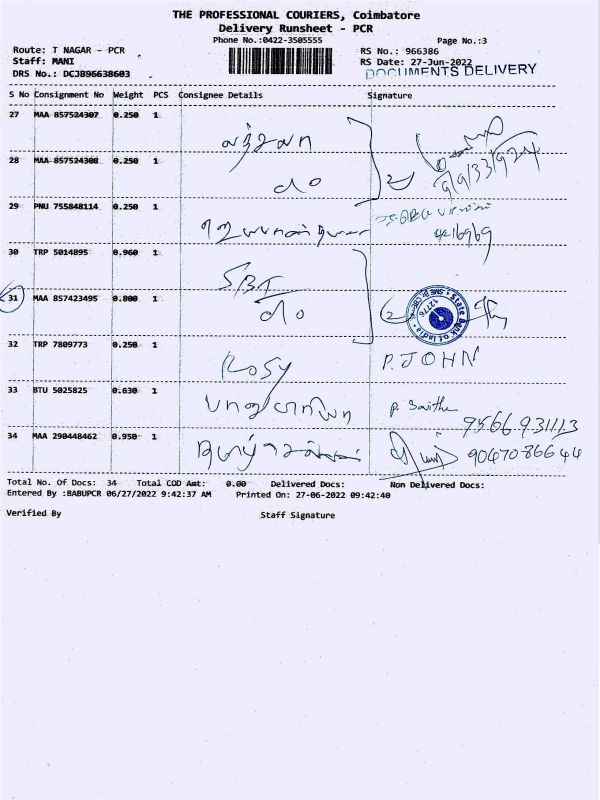 THE PROFESSIONAL COURIERS, Coimbatore
Delivery Runsheet - PCR
Phone No.:0422-3505555 Page No.:3
Route: T NAGAR - PCR RS No.: 966386
Staff: MANI RS Date: 27-Jun-2022
DRS No.: DCJB96638603 DOCUMENTS DELIVERY
S No Consignment No Weight PCS Consignee Details Signature
27 MAA 857524307 0.250 1
28 MAA 857524308 0.250 1
29 PNU 755848114 0.250 1
30 TRP 5014895 0.960 1 SBI
31 MAA 857423495 0.800 1
State Bank of India 12776
32 TRP 7809773 0.250 1 Rosy P. JOHN
33 BTU 5025825 0.630 1 P. Saitha
9566931113
34 MAA 290448462 0.950 1 9047086644
Total No. Of Docs: 34 Total COD Amt: 0.00 Delivered Docs: Non Delivered Docs:
Entered By :BABUPCR 06/27/2022 9:42:37 AM Printed On: 27-06-2022 09:42:40
Verified By Staff Signature